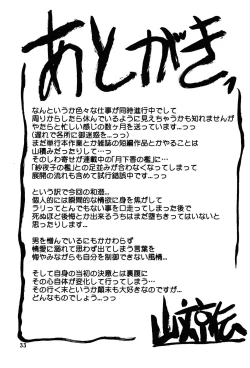 あとがき
なんというか色々な仕事が同時進行中でして
周りからしたら休んでいるように見えちゃうかも知れませんが
やたらと忙しい感じの数ヶ月を送っています…っっ
(遅れで各所に御迷惑を…っっ)
まだ単行本作業とか雑誌の短編作品とかやることは
山積みだったりして…っっ
そのしわ寄せが連載中の「月下香の檻」に…
「紗夜子の檻」との足並みが合わなくなってしまって
展開の流れも含めて試行錯誤中です…っっ
という訳で今回の和遊…
個人的には瞬間的な情欲に身を焦がして
ラリってとんでもない事を口走ってしまった後で
死ぬほど後悔とか出来るうちはまだ堕ちきってはいないと
思ったりします…
男を憎んでいるにもかかわらず
情愛に溺れて思わず出てしまう言葉を
悔やみながらも自分を制御できない風情…
そして自身の当初の決意とは裏腹に
その心自体が変化して行ってしまう…
その行く末というか顛末も大好きなのですが…
どんなものでしょう…っっ
33